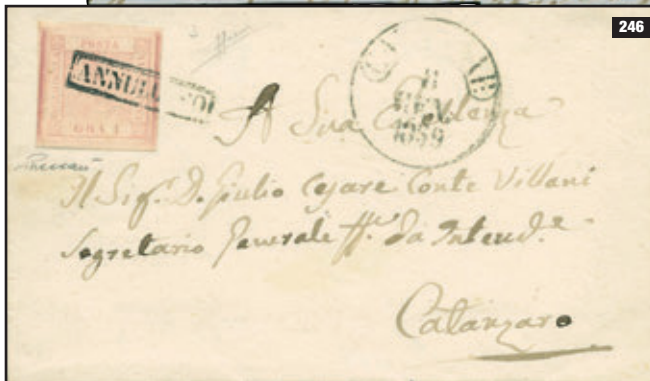 246
POSTA
ANNULLATO
GRA 1
8
GEN
1859
A Sua Eccellenza
Il Sig. D. Giulio Cesare Conte Villani
Segretario Generale ff. da Intend.e
Catanzaro